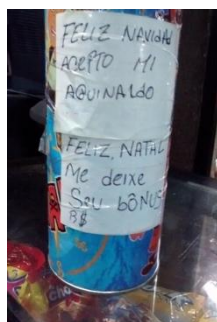 FELIZ NAVIDAD
ACEPTO MI
AGUINALDO
FELIZ, NATAL
Me deixe
Seu bÔNUS
R$